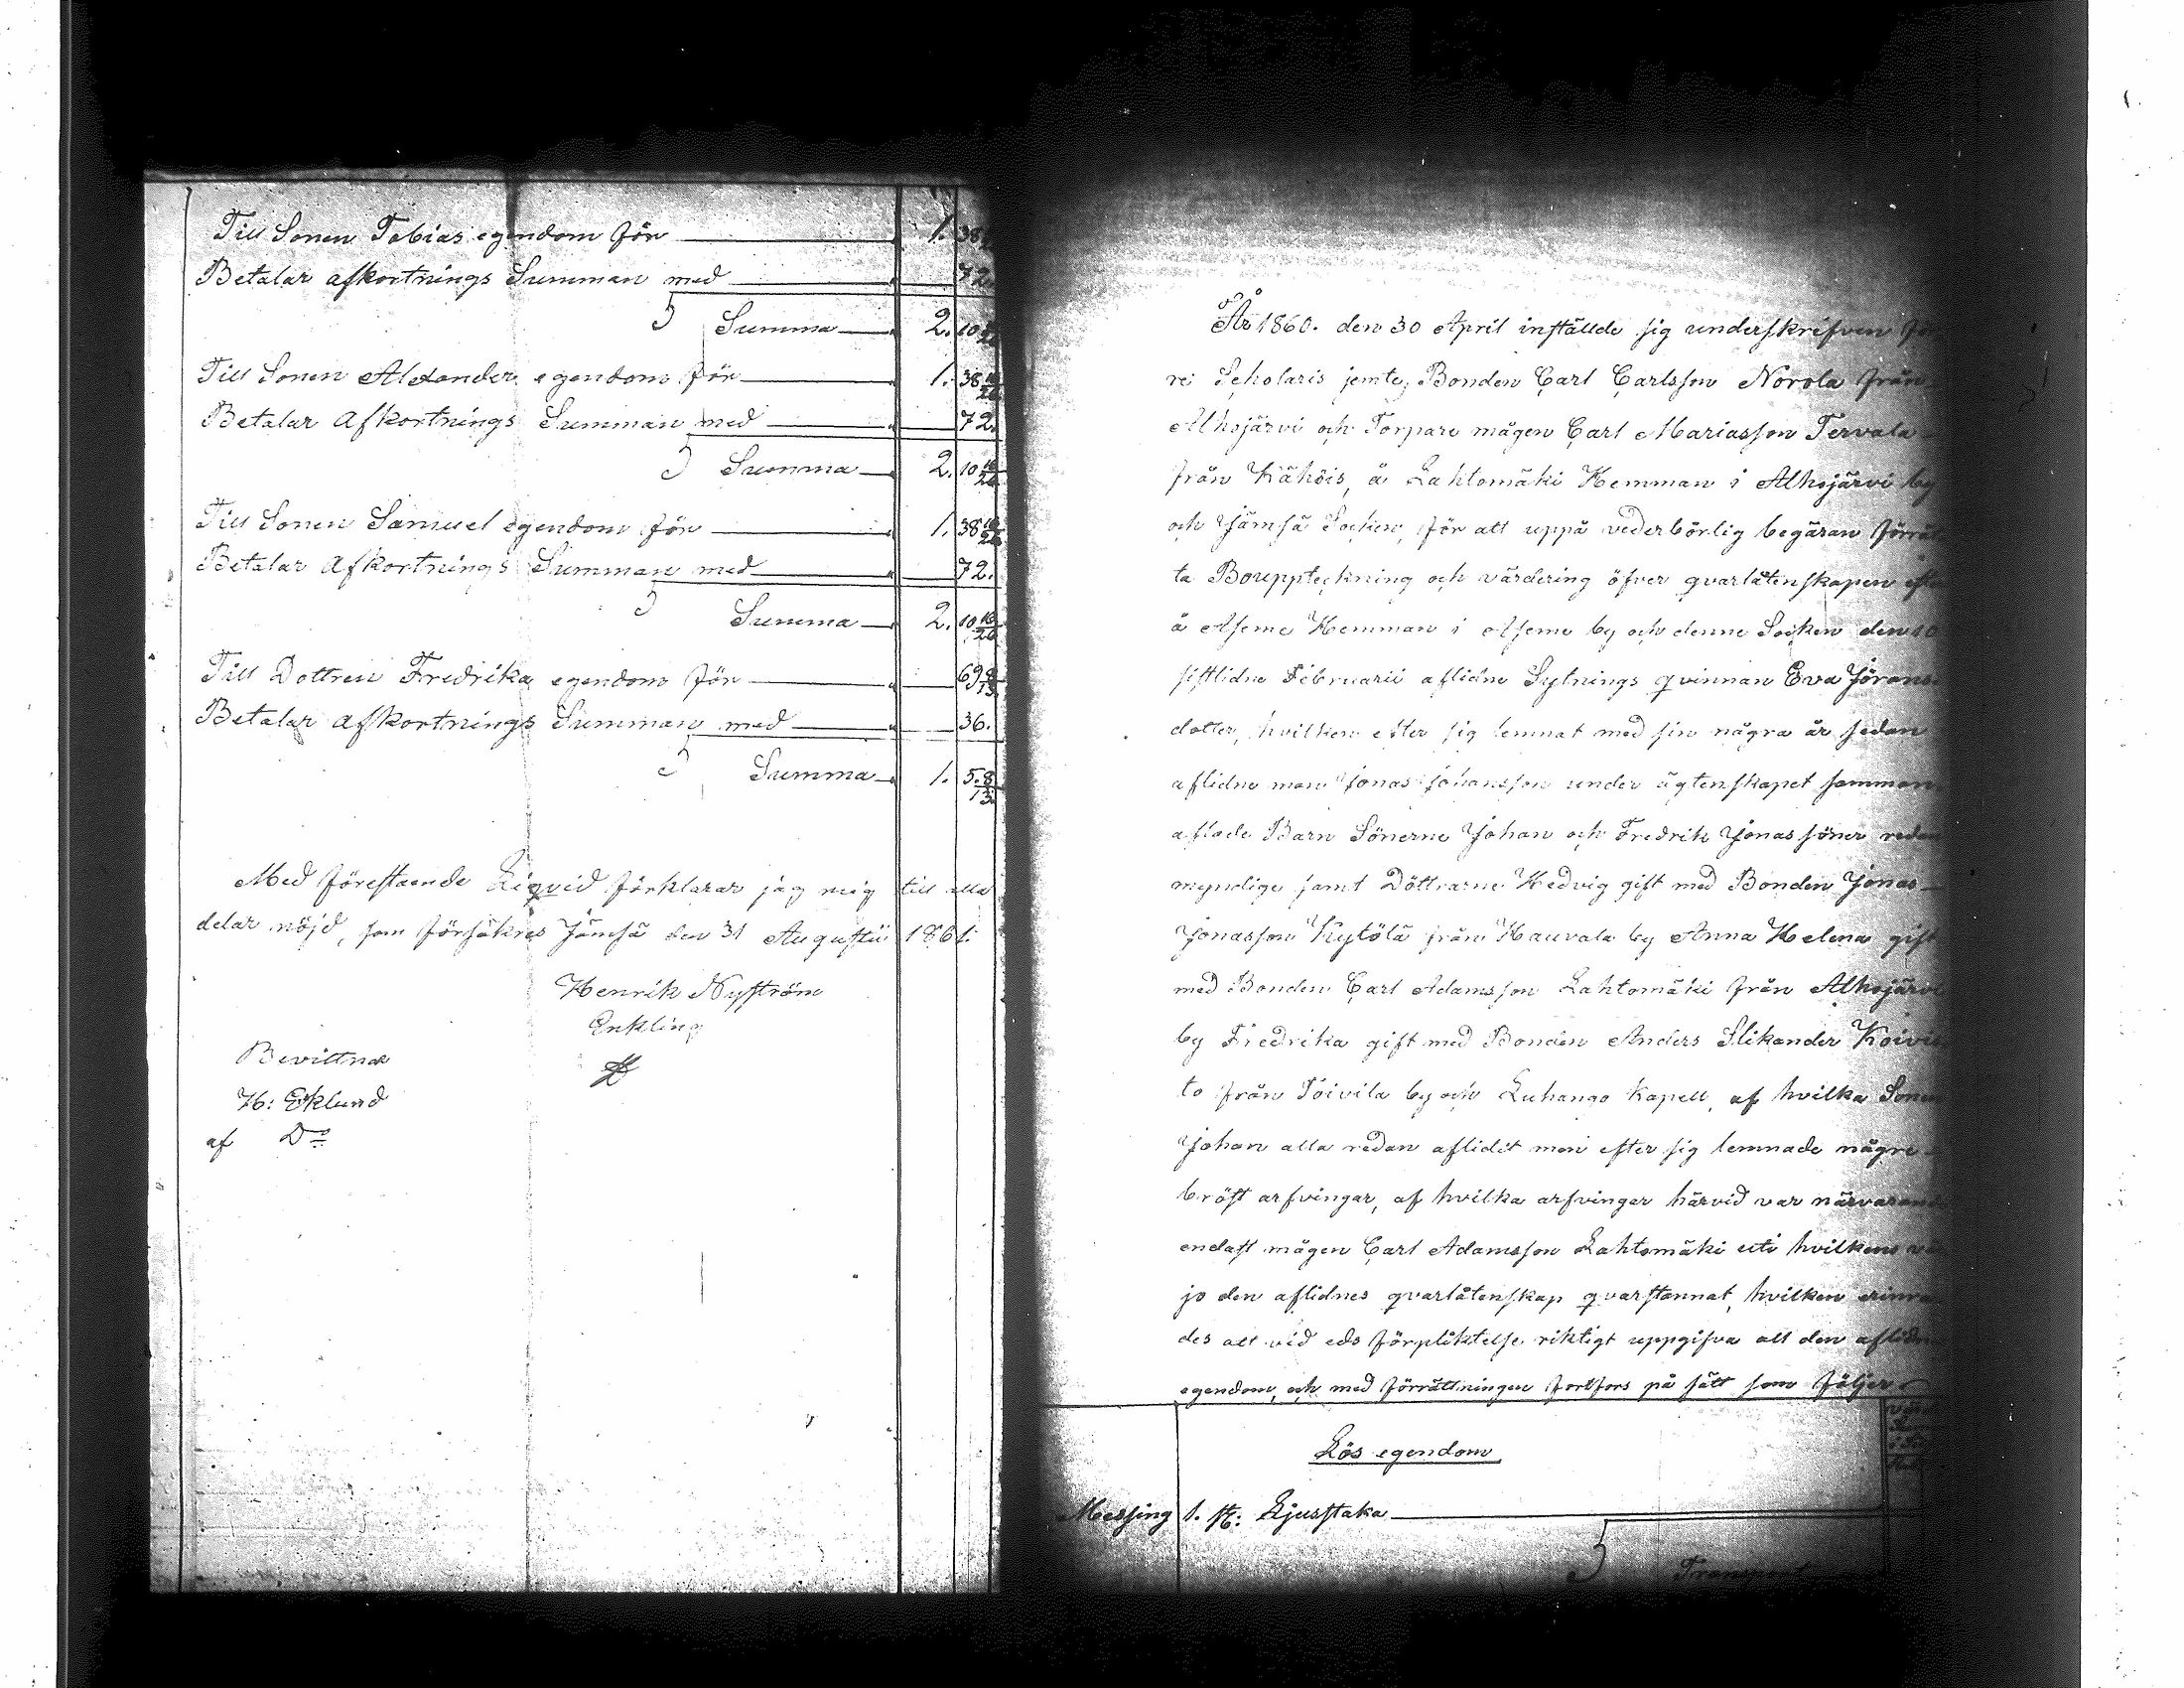 Till Sonen Tobias egendom för 1. 38
Betalar afkortnings Summan med 72.
Summa 2. 10
Till Sonen Alexander egendom för 1. 38
Betalar afkortnings Summan med 72.
Summa 2. 10 16/26
Till Sonen Samuel egendom för 1. 38
Betalar afkortnings Summan med 72.
Summa 2. 10 16/26
Till Dottren Fredrika egendom för 69
Betalar afkortnings Summan med 36.
Summa 1. 5. 8/13
Med förestaende Liqvid förklarar jag mig till alla
delar nöjd, som försäkras Jämsä den 31 Augustii 1861.
Henrik Nyström
Enkling
Bevittna
H: Eklund
af Do
År 1860. den 30 April inställde sig underskrifven
re Scholaris jemte Bonden Carl Carlsson Norola från
Alhojärvi och Torpare mågen Carl Mariasson Tervala
från Kähöis, å Lahtomäki Hemman i Alhojärvi by
och Jämsä Socken, för att uppå vederbörlig begäran förrät
ta Bouppteckning och värdering öfver qvarlåtenskapen
å Aseme Hemman i Aseme by och denne Socken den 10
sistlidne Februarii aflidne Sytnings qvinnan Eva Jörans
dotter, hvilken efter sig lemnat med sin några år sedan
aflidne man Jonas Johansson under ägtenskapet samman
aflade Barn Sönerne Johan och Fredrik Jonas söner redan
myndige samt Döttrarne Hedvig gift med Bonden Jonas
Jonasson Kytölä från Hauvala by Anna Helena gift
med Bonden Carl Adamsson Lahtomäki från Alhojärvi
by Fredrika gift med Bonden Anders Slikander Koivis
to från Toivila by och Luhango Kapell, af hvilka Sonen
Johan alla redan aflidit men efter sig lemnade några
bröst arfvingar, af hvilka arfvingar härvid var närvarande
endast mågen Carl Adamsson Lahtomäki uti hvilkens vår
jo den aflidnes qvarlåtenskap qvarstannat, hvilken erinra
des att vid eds förpliktelse riktigt uppgifva all den aflidnes
egendom, och med förrättningen fortfors på sätt som följer
Lös egendom
Messing 1. st: Ljusstaka
Transport